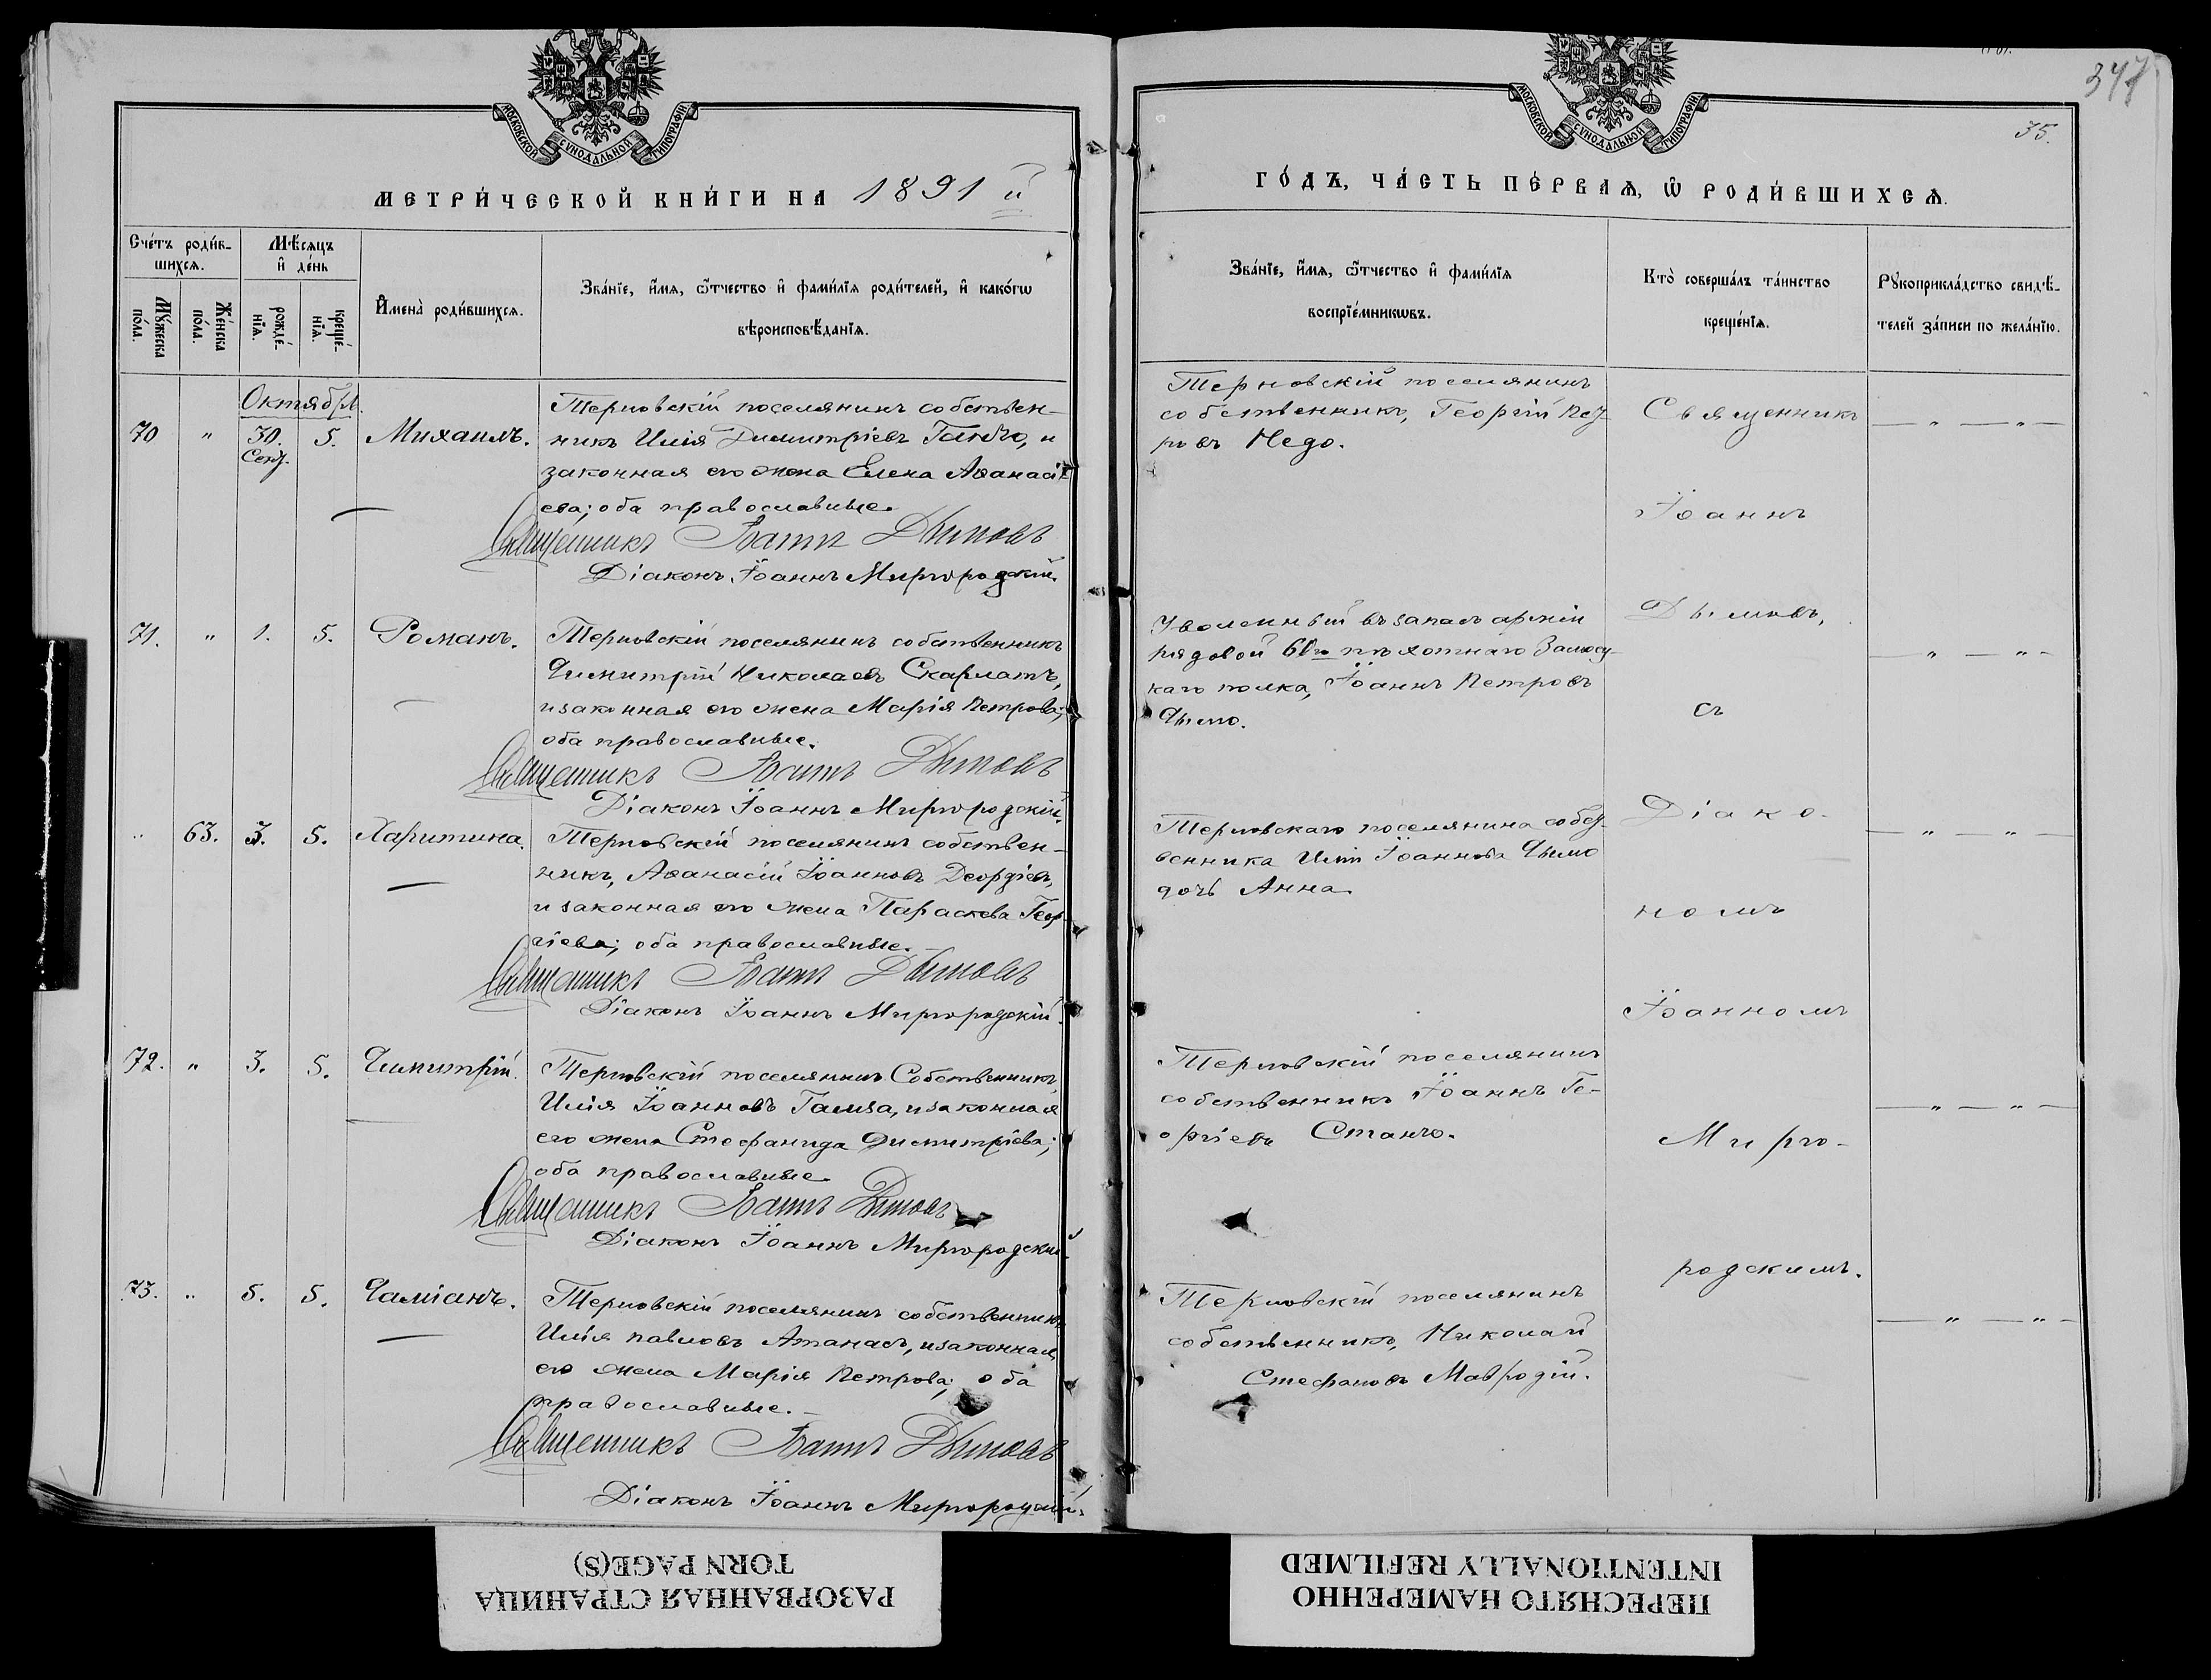 МОСКОВСКОЙ СѴНОДАЛЬНОЙ ТИПОГРАФІИ
МЕТРИ́ЧЕСКОЙ КНИ́ГИ НА 1891 й
Сче́тъ роди́в-
шихсѧ.
Мѣ́сѧцъ
и҆ де́нь
И҆мена̀ роди́вшихсѧ.
Зва́нїе, и҆́мѧ, ѻ҆́тчество и҆ фами́лїѧ роди́телей, и҆ како́гѡ
вѣроисповѣ́данїѧ.
Мꙋ́жеска
по́ла.
Же́нска
по́ла.
рожде́-
нїѧ.
креще́-
нїѧ.
Октябр.
70 " 30. Сент. 5. Михаилъ.
Терновскій поселянинъ собствен-
никъ Илія Димитріевъ Ганчо, и
законная его жена Елена Аѳанасі
ева; оба православные.
Священникъ Іоаннъ Дымовъ
Діаконъ Іоаннъ Миргородскій.
71. " 1. 5. Романъ.
Терновскій поселянинъ собственникъ
Димитрій Николаевъ Скарлатъ,
и законная его жена Марія Петрова;
оба православные.
Священникъ Іоаннъ Дымовъ
Діаконъ Іоаннъ Миргородскій.
" 63. 3. 5. Харитина.
Терновскій поселянинъ собствен-
никъ, Аѳанасій Іоанновъ Деордіевъ,
и законная его жена Параскева Геор-
гіева; оба православные.
Священникъ Іоаннъ Дымовъ
Діаконъ Іоаннъ Миргородскій.
72. " 3. 5. Димитрій.
Терновскій поселянинъ Собственникъ,
Илія Іоанновъ Гамза, и законная
его жена Стефанида Димитріева;
оба православные.
Священникъ Іоаннъ Дымовъ
Діаконъ Іоаннъ Миргородскій.
73. " 5. 5. Даміанъ.
Терновскій поселянинъ собственникъ
Илія Павловъ Атанасъ, и законная
его жена Марія Петрова; оба
православные.
Священникъ Іоаннъ Дымовъ
Діаконъ Іоаннъ Миргородскій.
347
35.
МОСКОВСКОЙ СѴНОДАЛЬНОЙ ТИПОГРАФІИ
ГО́ДЪ, ЧА́СТЬ ПЕ́РВАѦ, Ѡ҆ РОДИ́ВШИХСѦ.
Зва́нїе, и҆́мѧ, ѻ҆́тчество и҆ фами́лїѧ
воспрїе́мникѡвъ.
Кто̀ соверша́лъ та́инство
креще́нїѧ.
Рꙋкоприкла́дство свидѣ́-
телей за́писи по жела́нїю.
Терновскій поселянинъ
собственникъ, Георгій Пет-
ровъ Недо.
Уволенный въ запасъ арміи
рядовой 60го пѣхотнаго Замосц-
каго полка, Іоаннъ Петровъ
Дымо.
Терновскаго поселянина собст-
венника Иліи Іоаннова Дымо
дочь Анна.
Терновскій поселянинъ
собственникъ Іоаннъ Ге-
оргіевъ Станчо.
Терновскій поселянинъ
собственникъ, Николай
Стефановъ Мавродій.
Священникъ
Іоаннъ
Дымовъ,
съ
Діако-
номъ
Іоанномъ
Мирго-
родскимъ.
— " — " —
— " — " —
— " — " —
— " — " —
— " — " —
РАЗОРВАННАЯ СТРАНИЦА
TORN PAGE(S)
ПЕРЕСНЯТО НАМЕРЕННО
INTENTIONALLY REFILMED